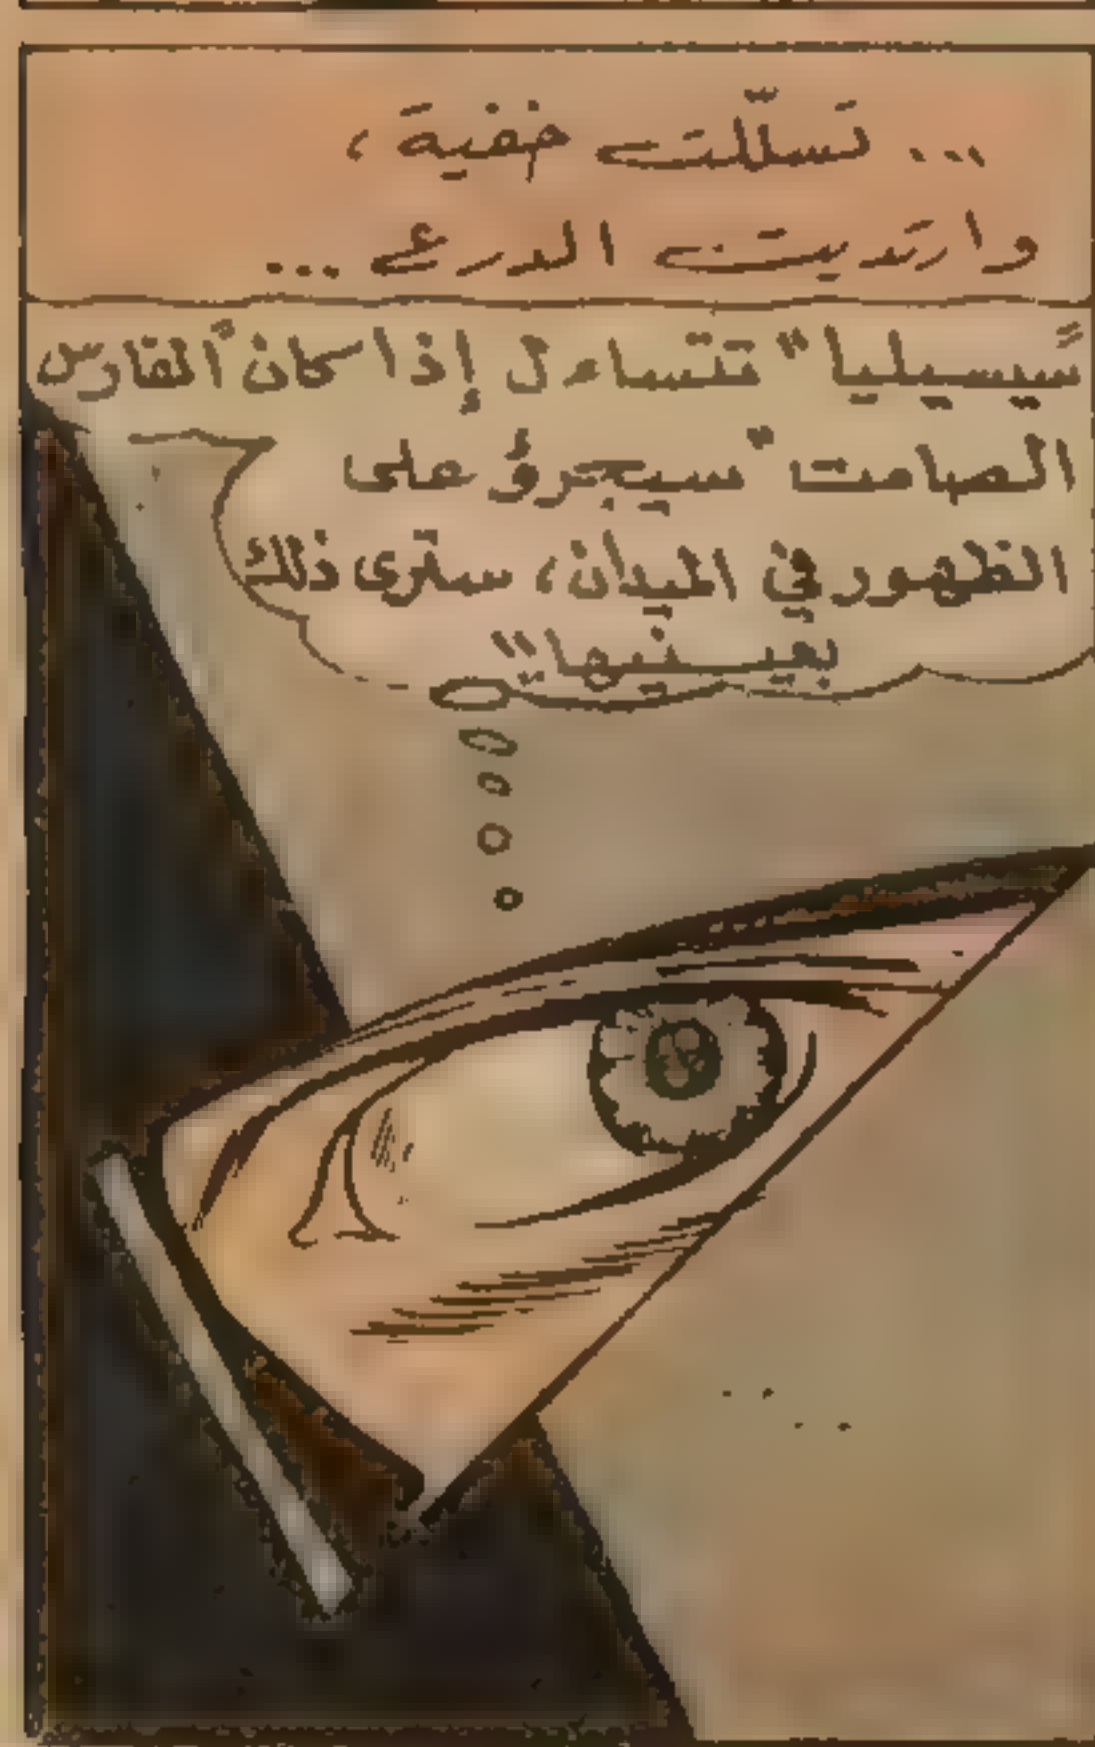 ... تسلّلت خفية،
وارتديت الدرع ...
"سيسيليا" تتساءل إذا كان "الفارس
الصامت" سيجرؤ على
الظهور في الميدان، سترى ذلك
بعينيها"